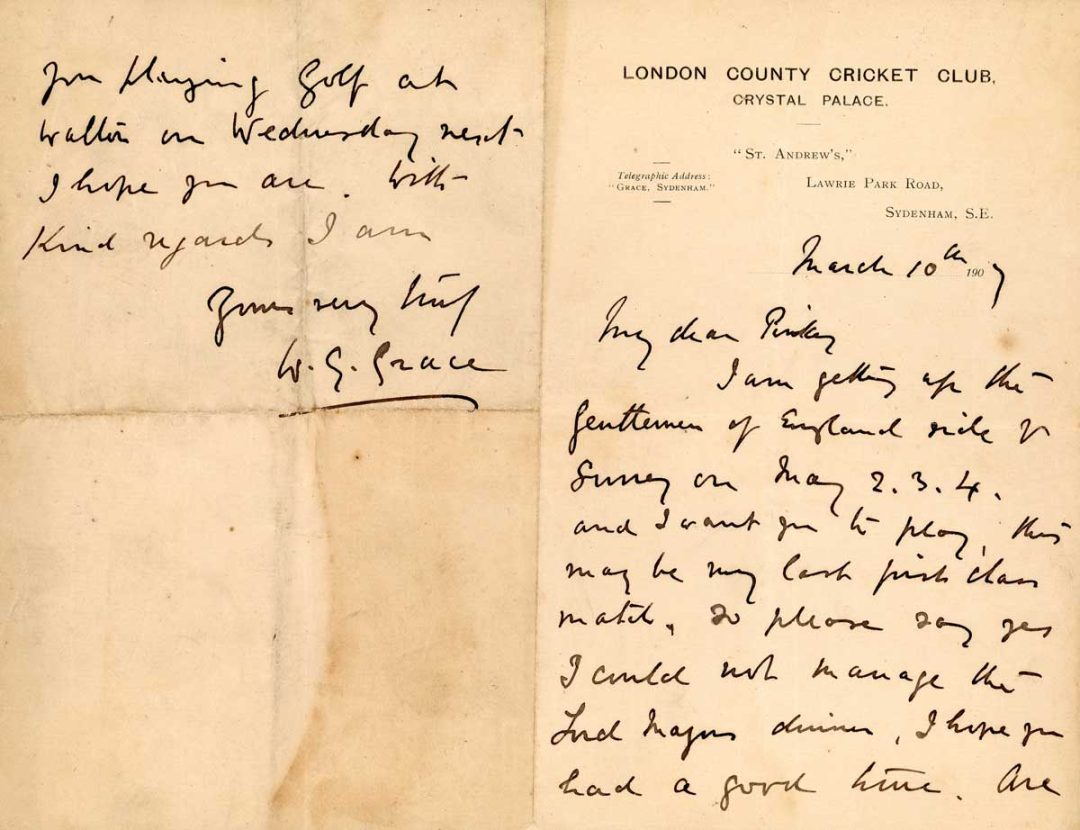 LONDON COUNTY CRICKET CLUB,
CRYSTAL PALACE.
"ST. ANDREW'S,"
Telegraphic Address:
"GRACE, SYDENHAM."
LAWRIE PARK ROAD,
SYDENHAM, S.E.
March 10th 1907
My dear Pinky
I am getting up the
Gentlemen of England side v
Surrey on May 2.3.4.
and I want you to play, this
may be my last first class
match, so please say yes
I could not manage the
Lord Mayors dinner, I hope you
had a good time. Are
you playing Golf at
Walton on Wednesday next
I hope you are. With
Kind regards I am
Yours very truly
W. G. Grace